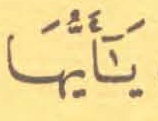 يَـٰٓأَيُّهَا